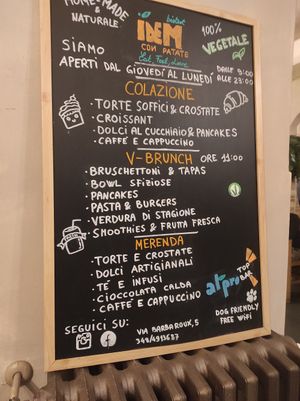 HOME-MADE
& NATURALE
bistrot
IDEM
CON PATATE
Eat, Feel, Love
100%
VEGETALE
SIAMO
APERTI DAL GIOVEDÌ AL LUNEDÌ
DALLE 9:00
ALLE 23:00
COLAZIONE
· TORTE SOFFICI & CROSTATE
· CROISSANT
· DOLCI AL CUCCHIAIO & PANCAKES
· CAFFÈ E CAPPUCCINO
V-BRUNCH ORE 11:00
· BRUSCHETTONI & TAPAS
· BOWL SFIZIOSE
· PANCAKES
· PASTA & BURGERS
· VERDURA DI STAGIONE
· SMOOTHIES & FRUTTA FRESCA
MERENDA
· TORTE E CROSTATE
· DOLCI ARTIGIANALI
· TÈ E INFUSI
· CIOCCOLATA CALDA
· CAFFÈ E CAPPUCCINO
alpro
TOP
BAR
DOG FRIENDLY
FREE WIFI
SEGUICI SU:
VIA BARBAROUX, 5